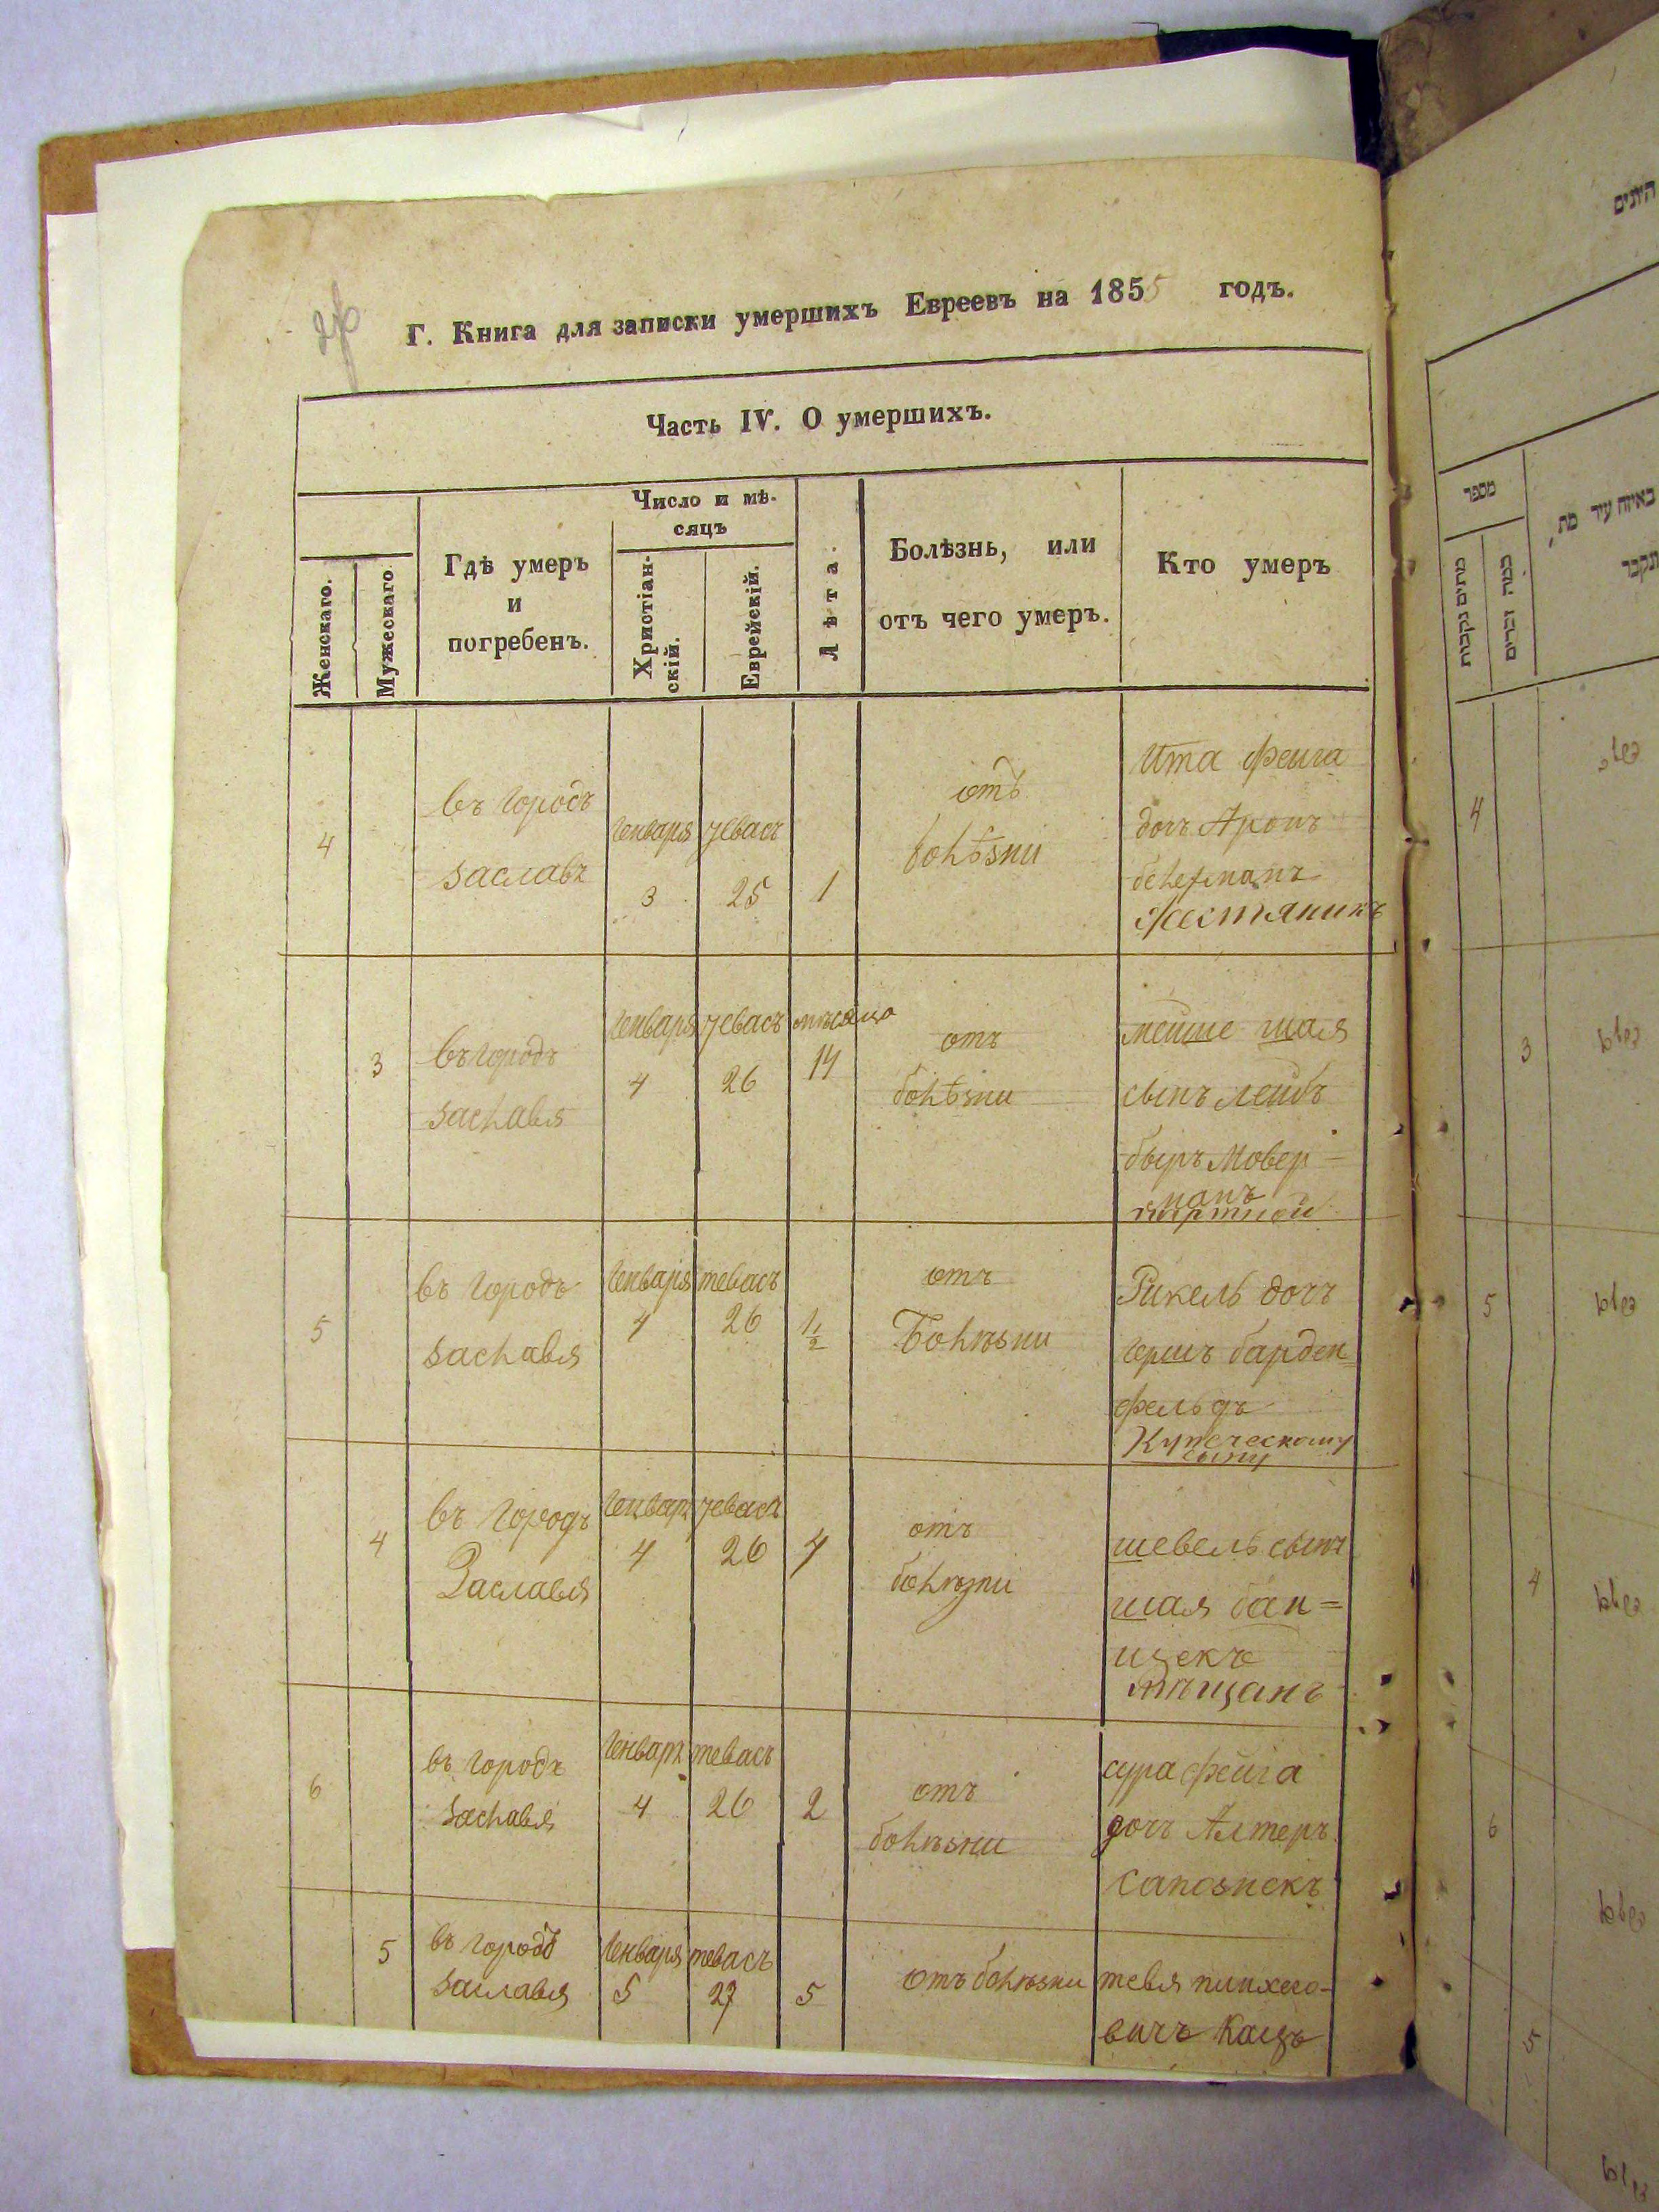 Г. Книга для записки умершихъ Евреевъ на 1855 годъ.
Часть IV. О умершихъ.
Женскаго.
Мужескаго.
Гдѣ умеръ
и
погребенъ.
Число и мѣ-
сяцъ
Христіан-
скій.
Еврейскій.
Лѣта.
Болѣзнь, или
отъ чего умеръ.
Кто умеръ
4
въ городѣ
заславѣ
Генваря
3
тевасъ
25
1
отъ
болѣзни
Ита фейга
доч Аронъ
Жестяникъ
3
въ городѣ
заславя
Генваря
4
тевасъ
26
мѣсяцо
14
отъ
болѣзни
мейше шая
сынъ лейбъ
быръ Мовер-
манъ
партной
5
въ городѣ
заславя
Генваря
4
тевасъ
26
1 1/2
отъ
Болѣзни
Рикель доч
гершъ барден=
фельдъ
Купеческому
сыну
4
въ городѣ
Заславя
Генваря
4
тевасъ
26
4
отъ
болѣзни
шевель сынъ
шая бан=
щекъ
мѣщанъ
6
въ городѣ
заславя
Генваря
4
тевасъ
26
2
отъ
болѣзни
сура фейга
доч Алтеръ
сапознекъ
5
въ городѣ
заславя
Генваря
5
тевасъ
27
5
отъ болѣзни
тевя пинхесо-
вичъ Кацъ
מספר
באיזה עיר מת,
4
3
5
4
6
5